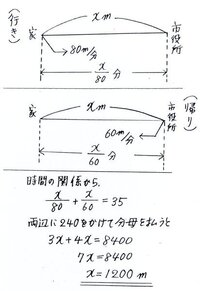 (行き)
x m
家
市役所
80m/分
x/80 分
(帰り)
x m
家
市役所
60m/分
x/60 分
時間の関係から、
x/80 + x/60 = 35
両辺に240をかけて分母を払うと
3x+4x=8400
7x=8400
x=1200m